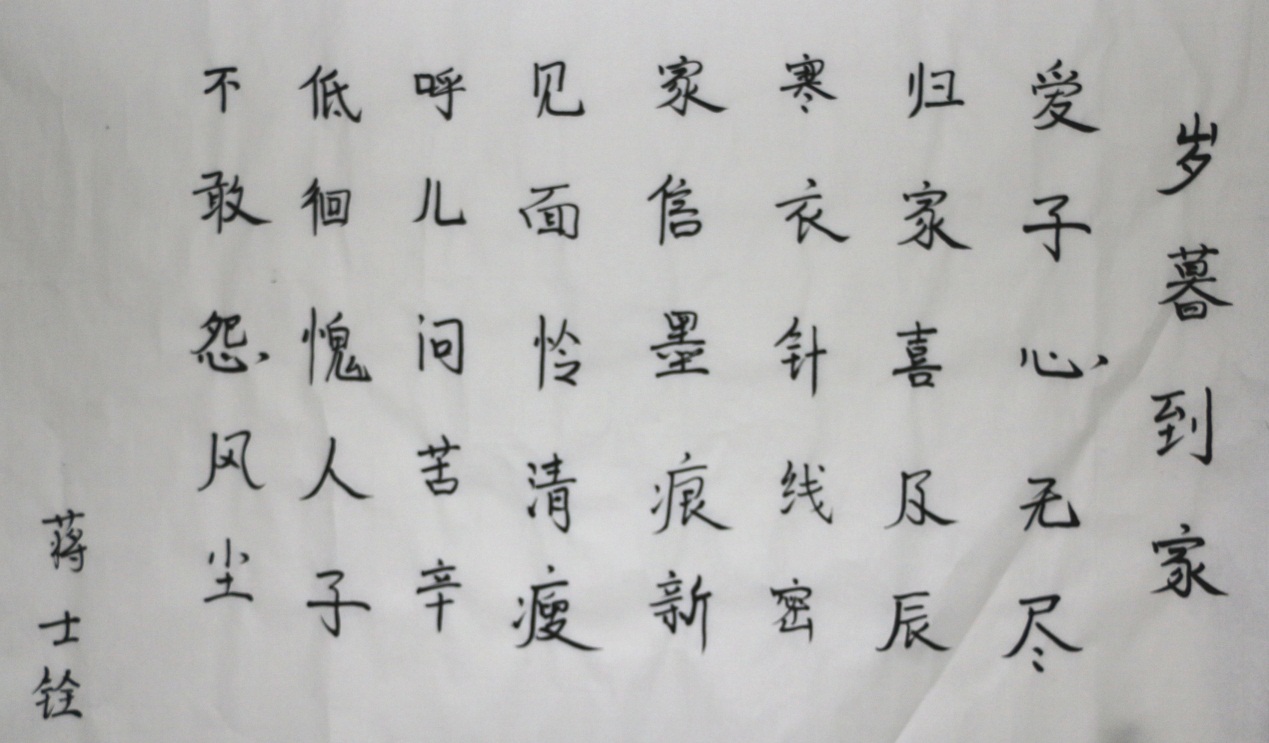 岁暮到家
爱子心无尽
归家喜及辰
寒衣针线密
家信墨痕新
见面怜清瘦
呼儿问苦辛
低徊愧人子
不敢怨风尘
蒋士铨